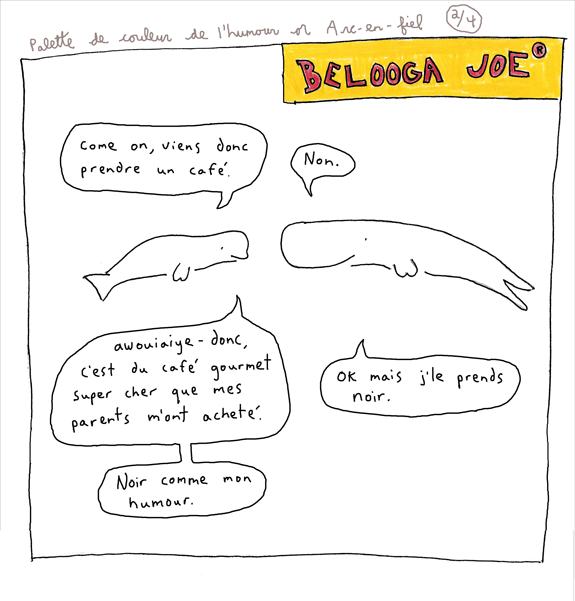 Palette de couleur de l'humour or Arc-en-fiel 2/4
BELOOGA JOE®
Come on, viens donc
prendre un café.
Non.
awouiaiye-donc,
c'est du café gourmet
super cher que mes
parents m'ont acheté.
OK mais j'le prends
noir.
Noir comme mon
humour.